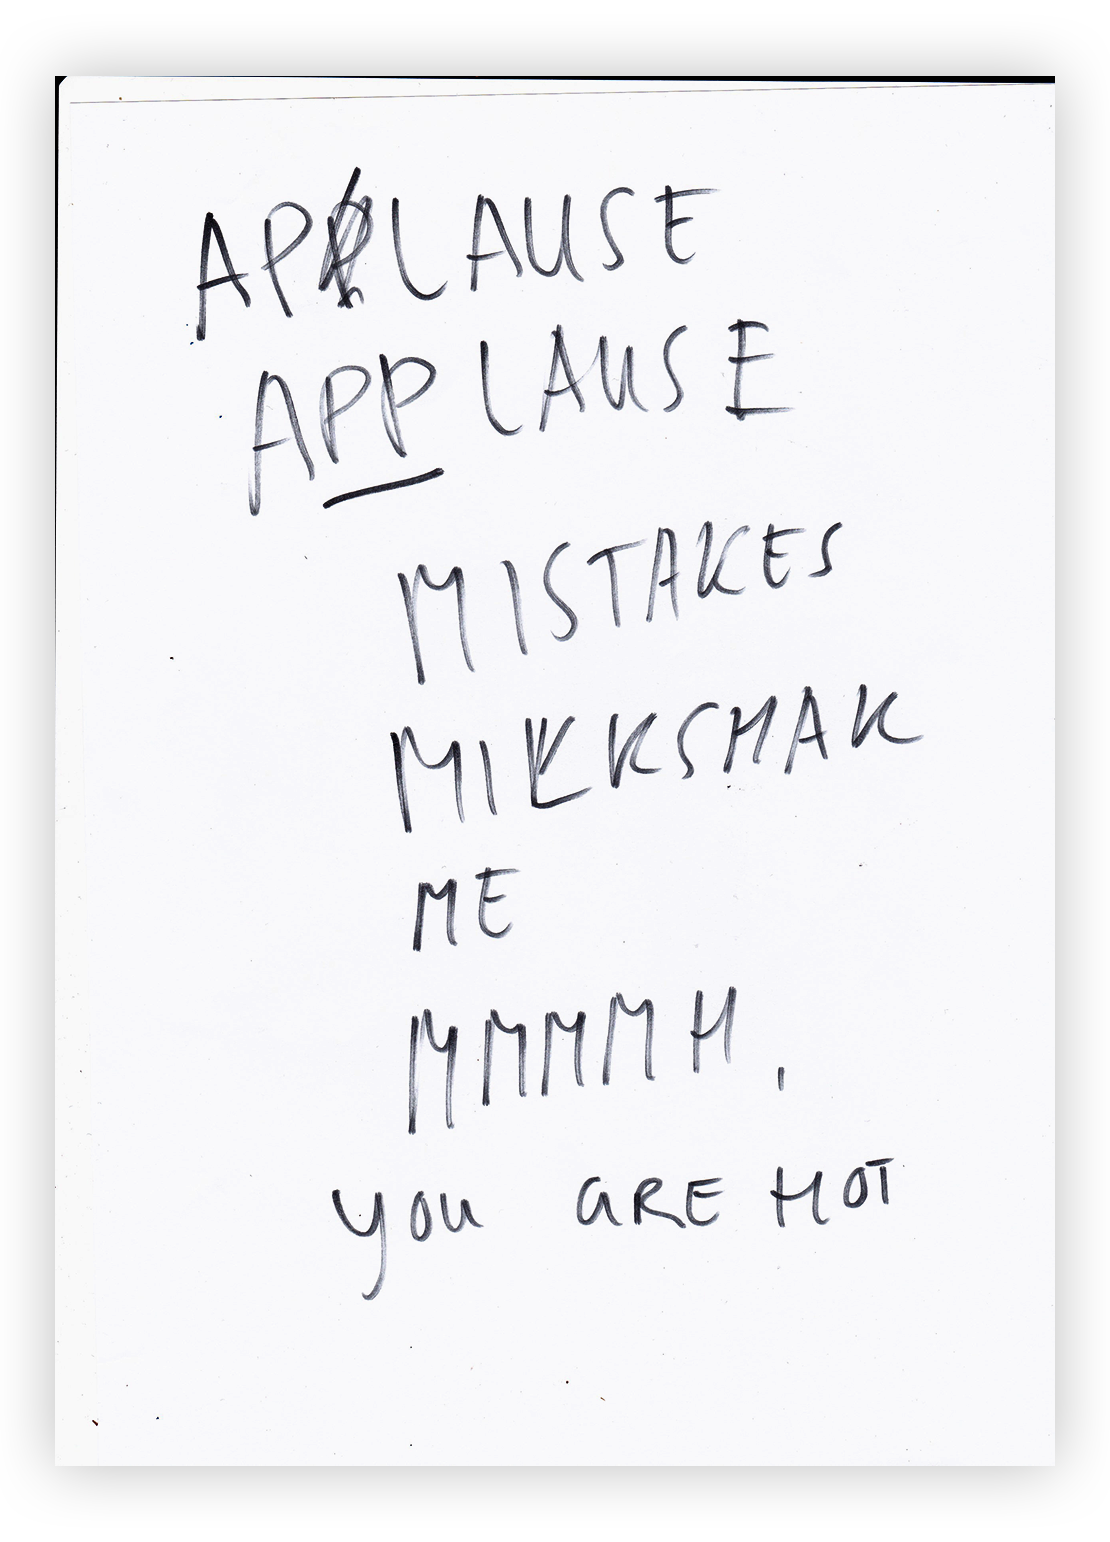 APPLAUSE
APPLAUSE
MISTAKES
MILKSHAK
ME
MMMMH.
YOU ARE HOT